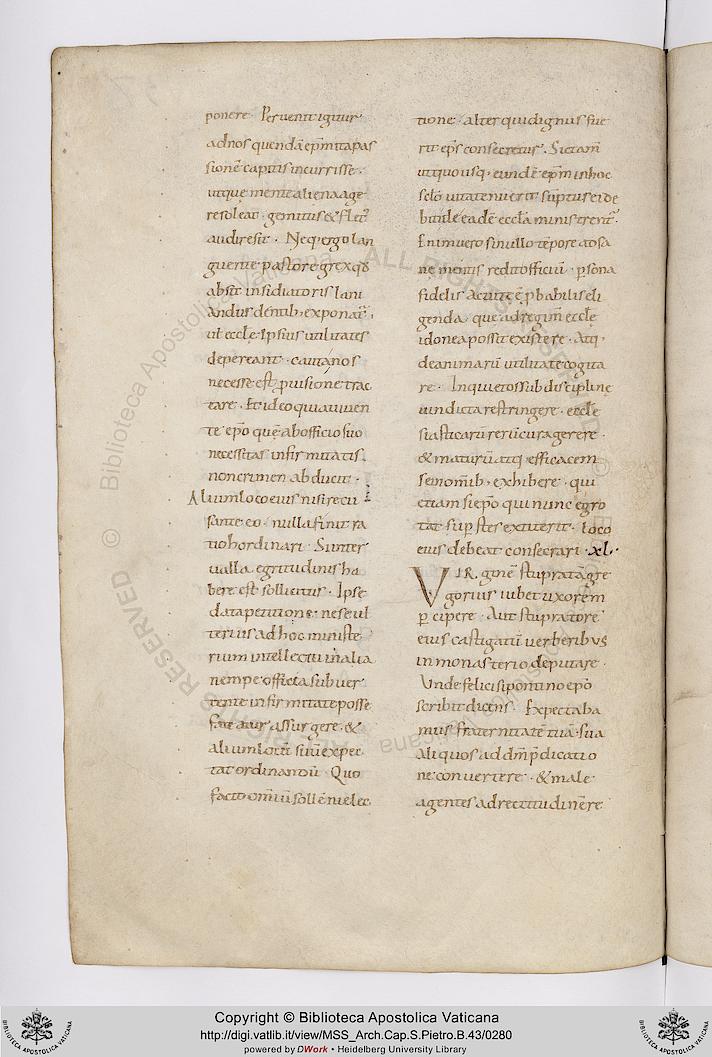 ponere · Peruenit igitur
ad nos quendā ep̄m ita pas
sionē capitis incurrisse ·
ut que mente aliena age
re soleat · gemitus & flet᷒
audire sit · Neq; ergo lan
guente pastore grex qd̄
absit insidiatoris lani
andus dentib; exponat᷒
ul eccle ipsius utilitates
depereant · caute nos
necesse est ꝓuisione trac
tare · Et ideo quia uiuen
te ep̄o quē ab officio suo
necessitas infirmitatis ·
non crimen abducit ·
Alium loco eius nisi recu
sante eo · nulla sinit ra
tio hordinari · Si inter
ualla egritudinis ha
bere est sollicitus · Ipse
data petitione · ne se ul
terius ad hoc ministe
rium intellectu in alia
nempe officia subuer
tente infirmitate posse
fateatur assurgere · &
alium loci sui expec
tat ordinandū · Quo
facto omniū sollēni elec
tione · alter qui dignus fue
rit ep̄s consecretur · Si c̄ tam̄
ut quousq; eundē ep̄m in hoc
sclō uita tenuerit sūptus ei de
biti de eadē eccla ministrent᷒ ·
Enimuero si nullo tēpore ad sa
ne mentis redit officiū · ꝑsona
fidelis ac uite ē ꝓbabilis eli
genda · que ad regim̄ eccle
idonea possit existere · atq;
de animarū utilitate cogita
re · Inquietos sub discipline
uindicta restringere · eccle
siasticarū rerū cura gerere ·
& maturū atq; efficacem
se in omnib; exhibere · qui
etiam si ep̄o qui nunc egro
tat sup̄stes extiterit · loco
eius debeat consecrari · xl ·
VIRginē stuprata gre
gorius iubet uxorem
ꝑcipere · Aut stupratore
eius castigatū uerberib;
in monasterio deputare ·
Unde felici sipontino ep̄o
scribit dicens · Expectaba
mus fraternitatē tuā · sua
aliquos ad dm̄ p̄dicatio
ne conuertere · & male
agentes ad rectitudinē re
Copyright © Biblioteca Apostolica Vaticana
http://digi.vatlib.it/view/MSS_Arch.Cap.S.Pietro.B.43/0280
powered by DWork • Heidelberg University Library